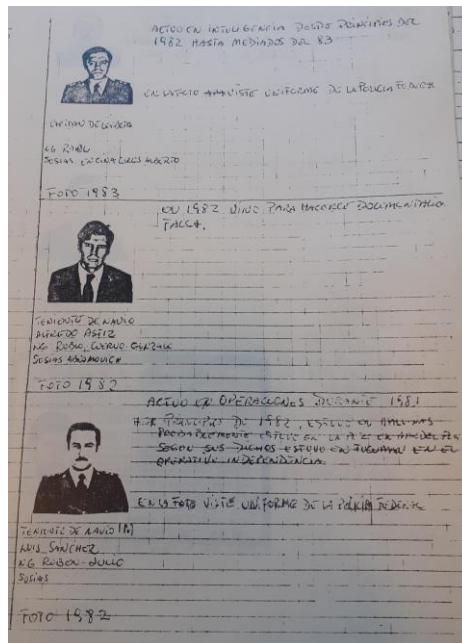 ACTUO EN INTELIGENCIA DESDE PRINCIPIOS DEL
1982 HASTA MEDIADOS DEL 83
EN LA FOTO VISTE UNIFORME DE LA POLICIA FEDERAL
NG
SOSIAS ALBERTO
FOTO 1983
EN 1982 VINO PARA HACERSE DOCUMENTACION
FALSA.
TENIENTE DE NAVIO
ALFREDO ASTIZ
NG RUBIO, CUERVO GONZALO
SOSIAS ABRAMOVICH
FOTO 1982
ACTUO EN OPERACIONES DURANTE 1981
PRINCIPIO DE 1982, ESTUVO EN MALVINAS
PROBABLEMENTE ESTUVO EN LA
SEGUN SUS DICHOS ESTUVO EN TUCUMAN EN EL
OPERATIVO INDEPENDENCIA.
EN LA FOTO VISTE UNIFORME DE LA POLICIA FEDERAL
TENIENTE DE NAVIO
LUIS SANCHEZ
NG RUBEN - JULIO
SOSIAS
FOTO 1982